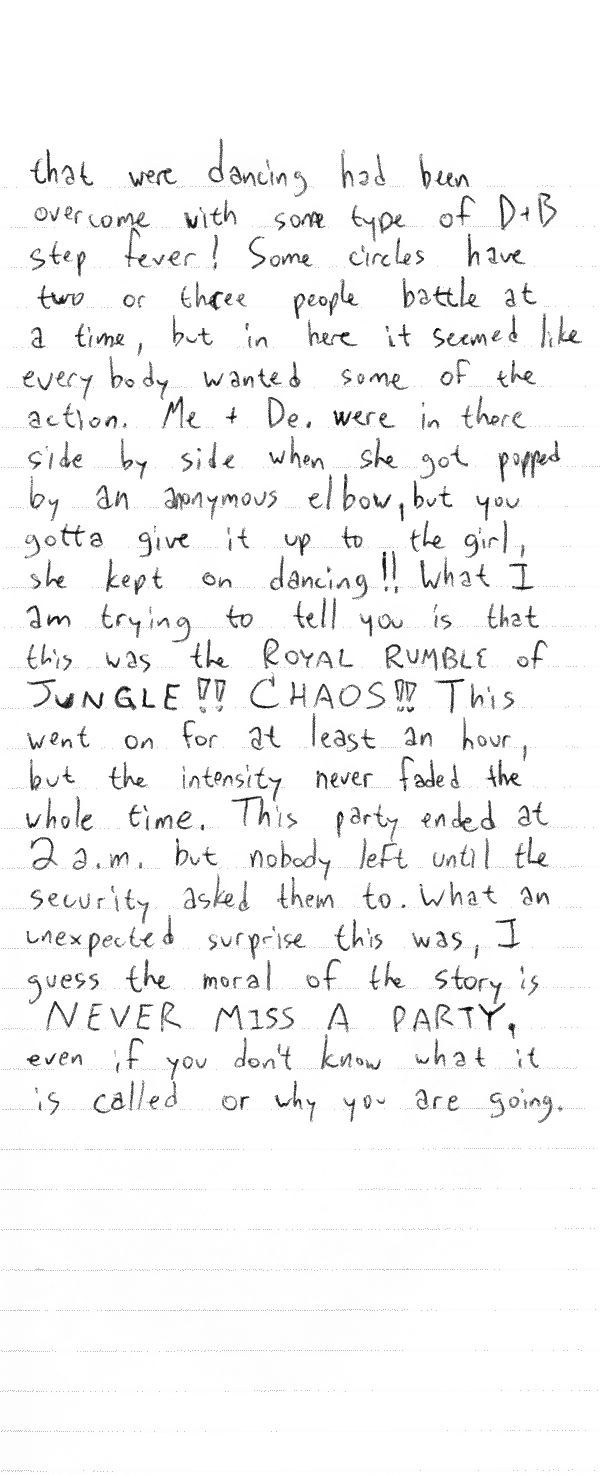 that were dancing had been
overcome with some type of D+B
step fever! Some circles have
two or three people battle at
a time, but in here it seemed like
everybody wanted some of the
action. Me + De. were in there
side by side when she got popped
by an anonymous elbow, but you
gotta give it up to the girl,
she kept on dancing!! What I
am trying to tell you is that
this was the ROYAL RUMBLE of
JUNGLE!! CHAOS!! This
went on for at least an hour,
but the intensity never faded the
whole time. This party ended at
2 a.m. but nobody left until the
security asked them to. What an
unexpected surprise this was, I
guess the moral of the story is
NEVER MISS A PARTY,
even if you don't know what it
is called or why you are going.